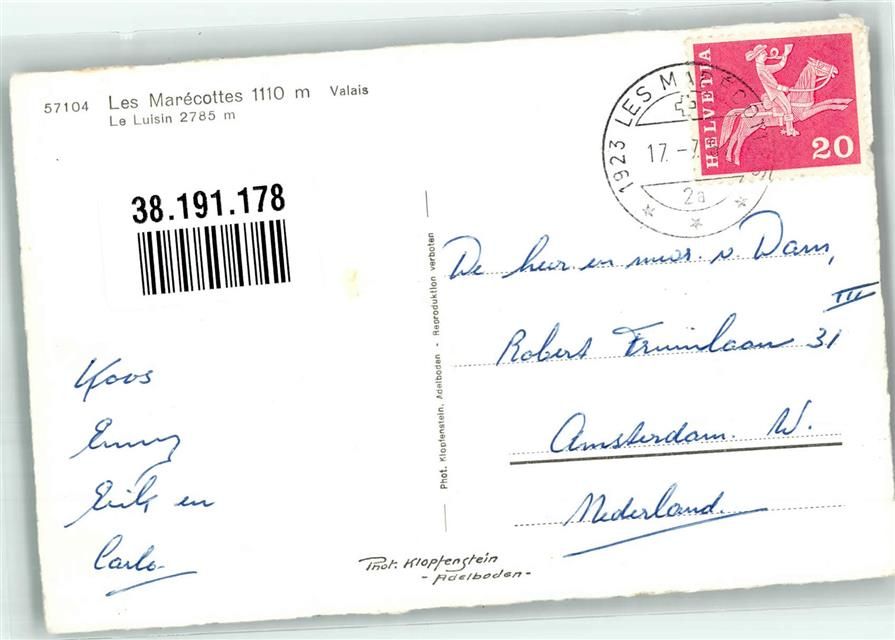 57104 Les Marécottes 1110 m Valais
Le Luisin 2785 m
38.191.178
HELVETIA
20
1923 LES MARÉCOTTES
17.-7.
2a
Phot. Klopfenstein, Adelboden - Reproduktion verboten
De heer en mevr. v. Dam,
III
Robert Fruinlaan 31
Amsterdam. W.
Nederland.
Koos
Emmy
Erik en
Carlo
Phot. Klopfenstein
- Adelboden -